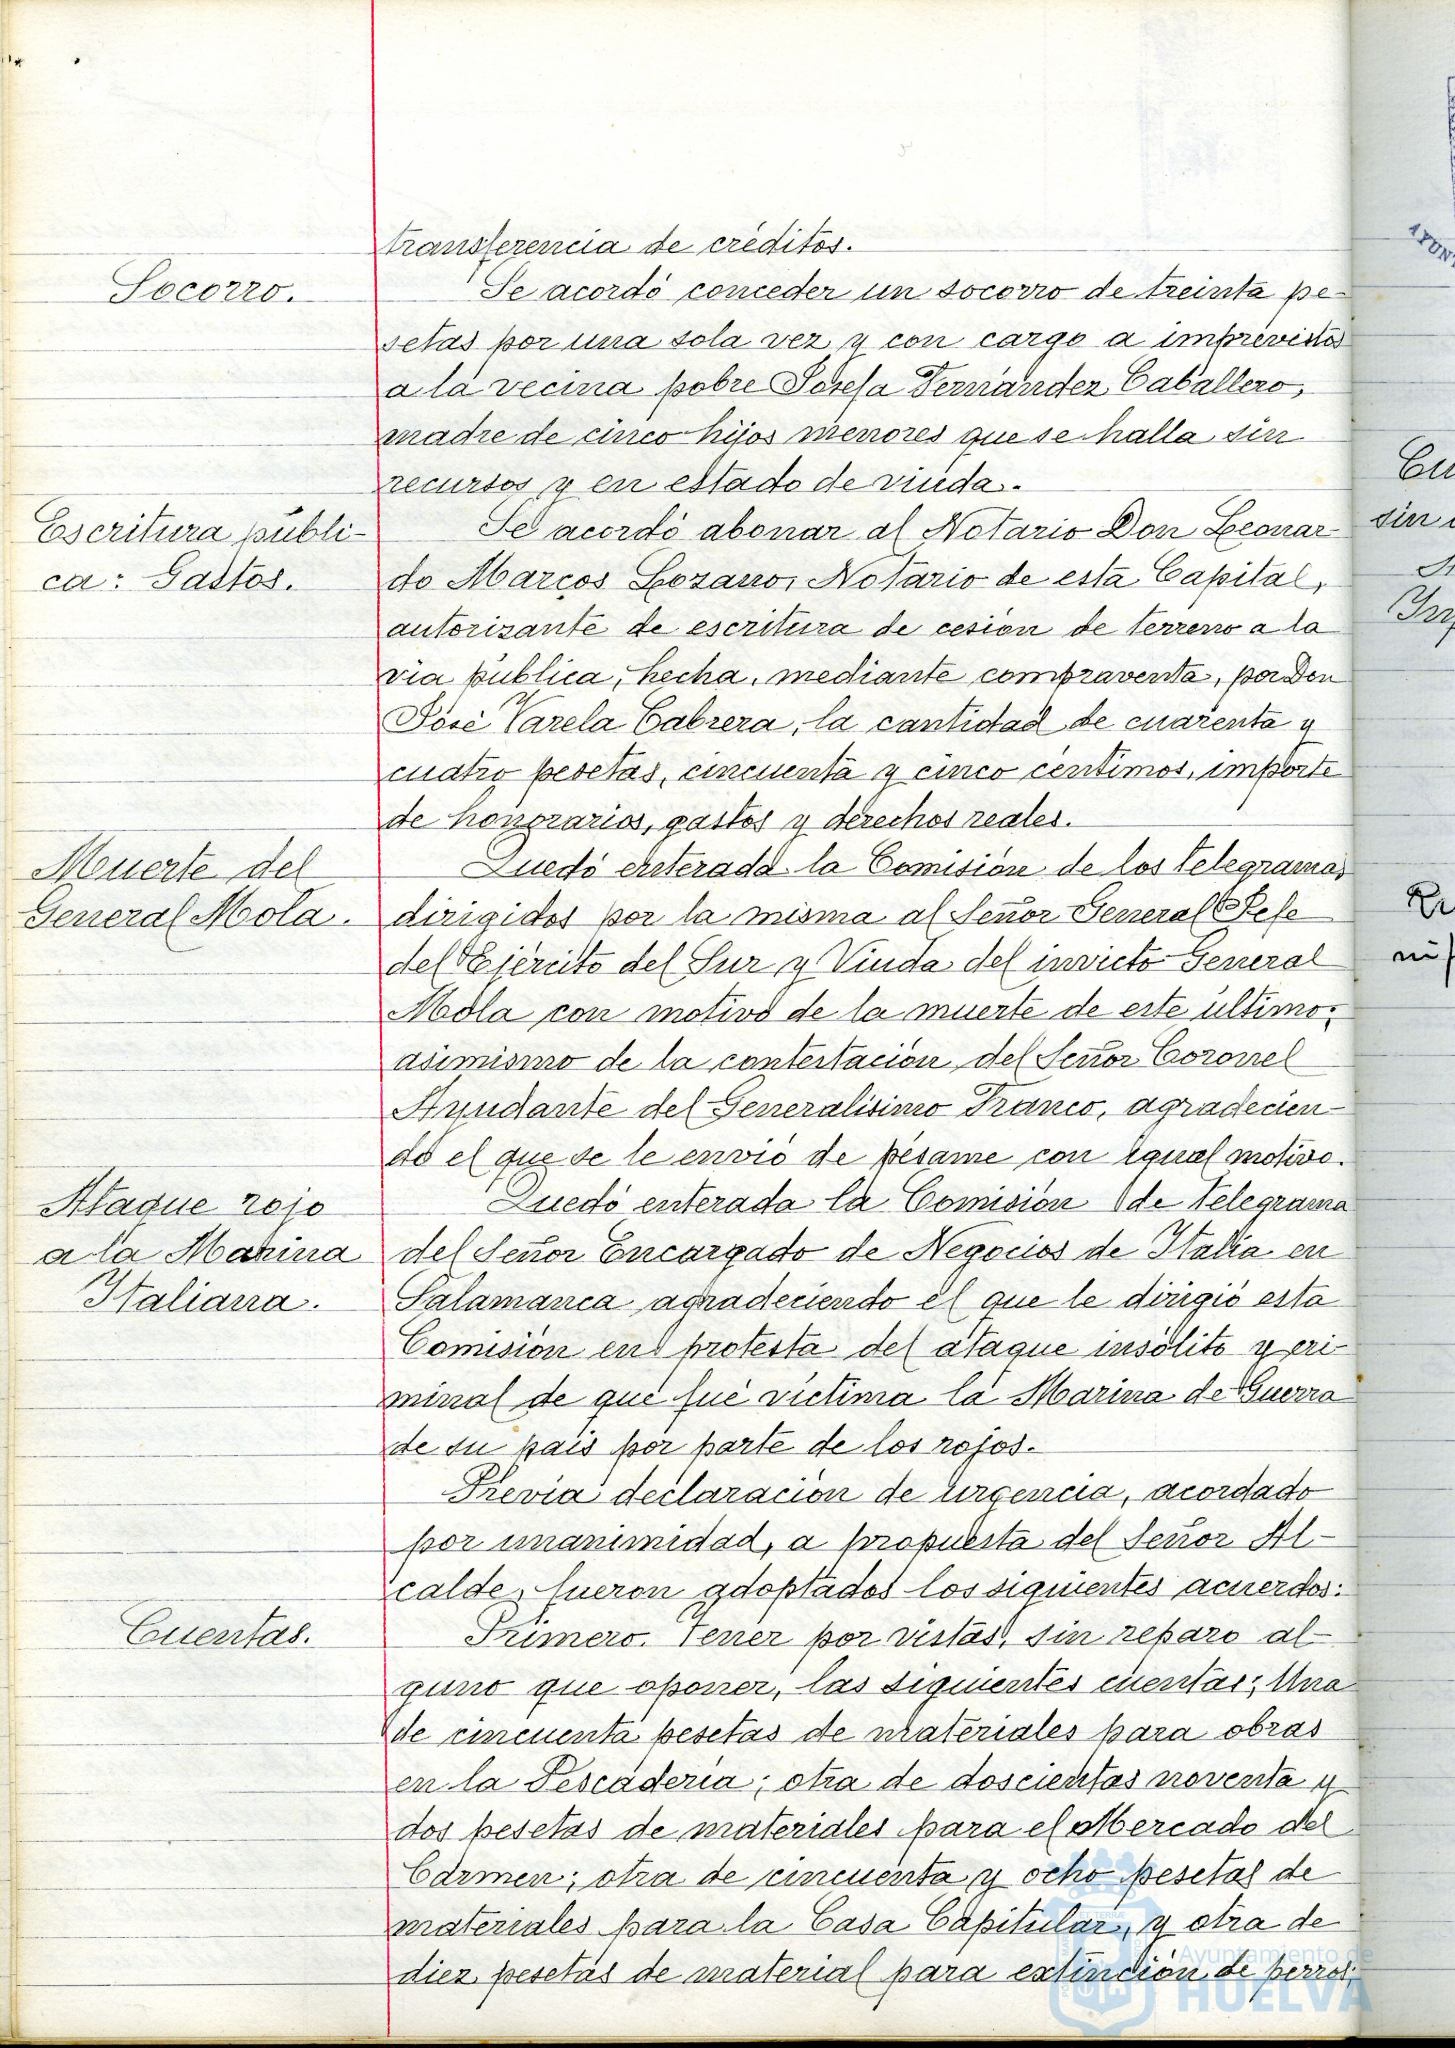 transferencia de créditos.
Socorro.
Se acordó conceder un socorro de treinta pe-
setas por una sola vez y con cargo a imprevistos
a la vecina pobre Josefa Fernández Caballero,
madre de cinco hijos menores que se halla sin
recursos y en estado de viuda.
Escritura públi-
ca: Gastos.
Se acordó abonar al Notario Don Leonar-
do Marcos Lozano, Notario de esta Capital,
autorizante de escritura de cesión de terreno a la
via pública, hecha, mediante compraventa, por Don
José Varela Cabrera, la cantidad de cuarenta y
cuatro pesetas, cincuenta y cinco céntimos, importe
de honorarios, gastos y derechos reales.
Muerte del
General Mola.
Quedó enterada la Comisión de los telegramas
dirigidos por la misma al Señor General Jefe
del Ejército del Sur y Viuda del invicto General
Mola con motivo de la muerte de este último;
asimismo de la contestación del Señor Coronel
Ayudante del Generalísimo Franco, agradecien-
do el que se le envió de pésame con igual motivo.
Ataque rojo
a la Marina
Italiana.
Quedó enterada la Comisión de telegrama
del Señor Encargado de Negocios de Italia en
Salamanca agradeciendo el que le dirigió esta
Comisión en protesta del ataque insólito y cri-
minal de que fué víctima la Marina de Guerra
de su país por parte de los rojos.
Previa declaración de urgencia, acordado
por unanimidad, a propuesta del Señor Al-
calde, fueron adoptados los siguientes acuerdos:
Cuentas.
Primero. Tener por vistas, sin reparo al-
guno que oponer, las siguientes cuentas: Una
de cincuenta pesetas de materiales para obras
en la Pescadería; otra de doscientas noventa y
dos pesetas de materiales para el Mercado del
Carmen; otra de cincuenta y ocho pesetas de
materiales para la Casa Capitular, y otra de
diez pesetas de material para extinción de perros,
Ayuntamiento de
HUELVA
AYUNT
Cu
sin